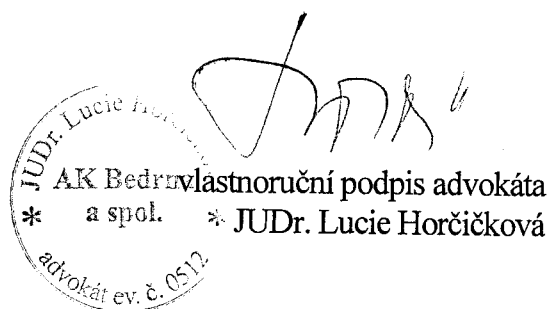 JUDr. Lucie
AK
a spol.
advokát ev. č. 0512
vlastnoruční podpis advokáta
JUDr. Lucie Horčičková